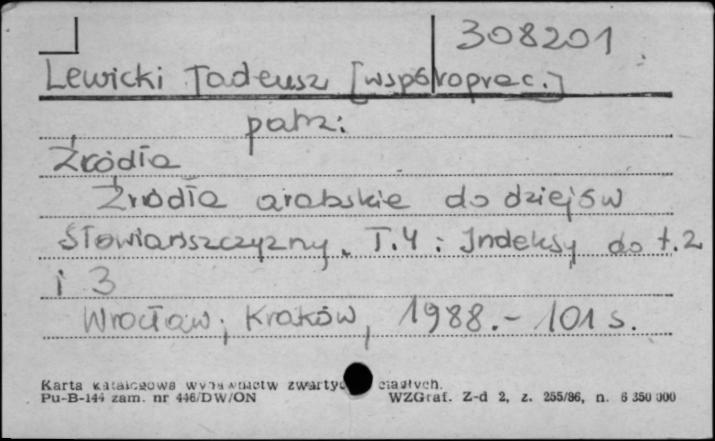 308201
Lewicki Tadeusz [współoprac.]
patrz:
Źródła
Źródła arabskie do dziejów
Słowiańszczyzny. T.4: Indeksy do t.2
i 3
Wrocław; Kraków, 1988.- 101 s.
Karta katalogowa wydawnictw zwartych ciągłych.
Pu-B-144 zam. nr 446/DW/ON WZGraf. Z-d 2, z. 255/86, n. 6 350 000